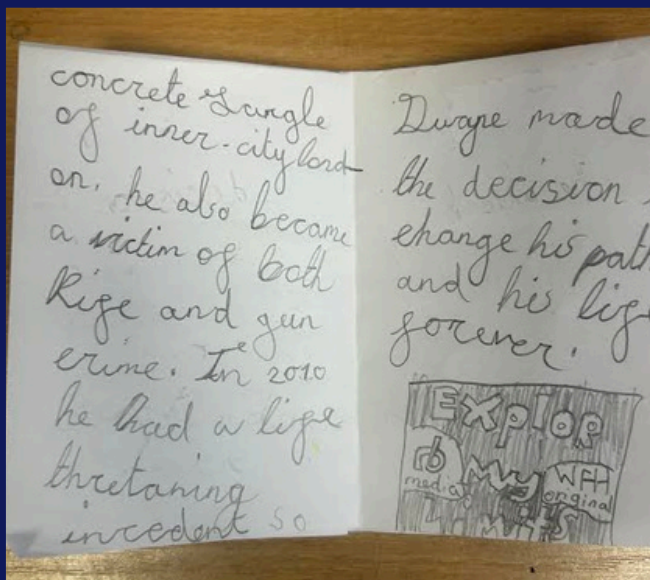 concrete Jungle
of inner-city lond
on. he also became
a victim of both
Kife and gun
crime. In 2010
he had a life
thretaning
incedent so
Dwayne made
the decision
change his path
and his life
forever.
EXPlOR
rb
media
My
WFH
original